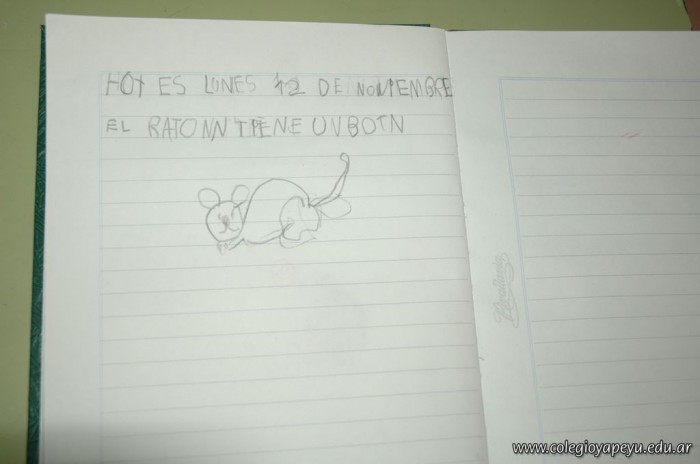 HOY ES LUNES 12 DE NOVIEMBRE
EL RATONN TPENE UN BOTN
www.colegioyapeyu.edu.ar